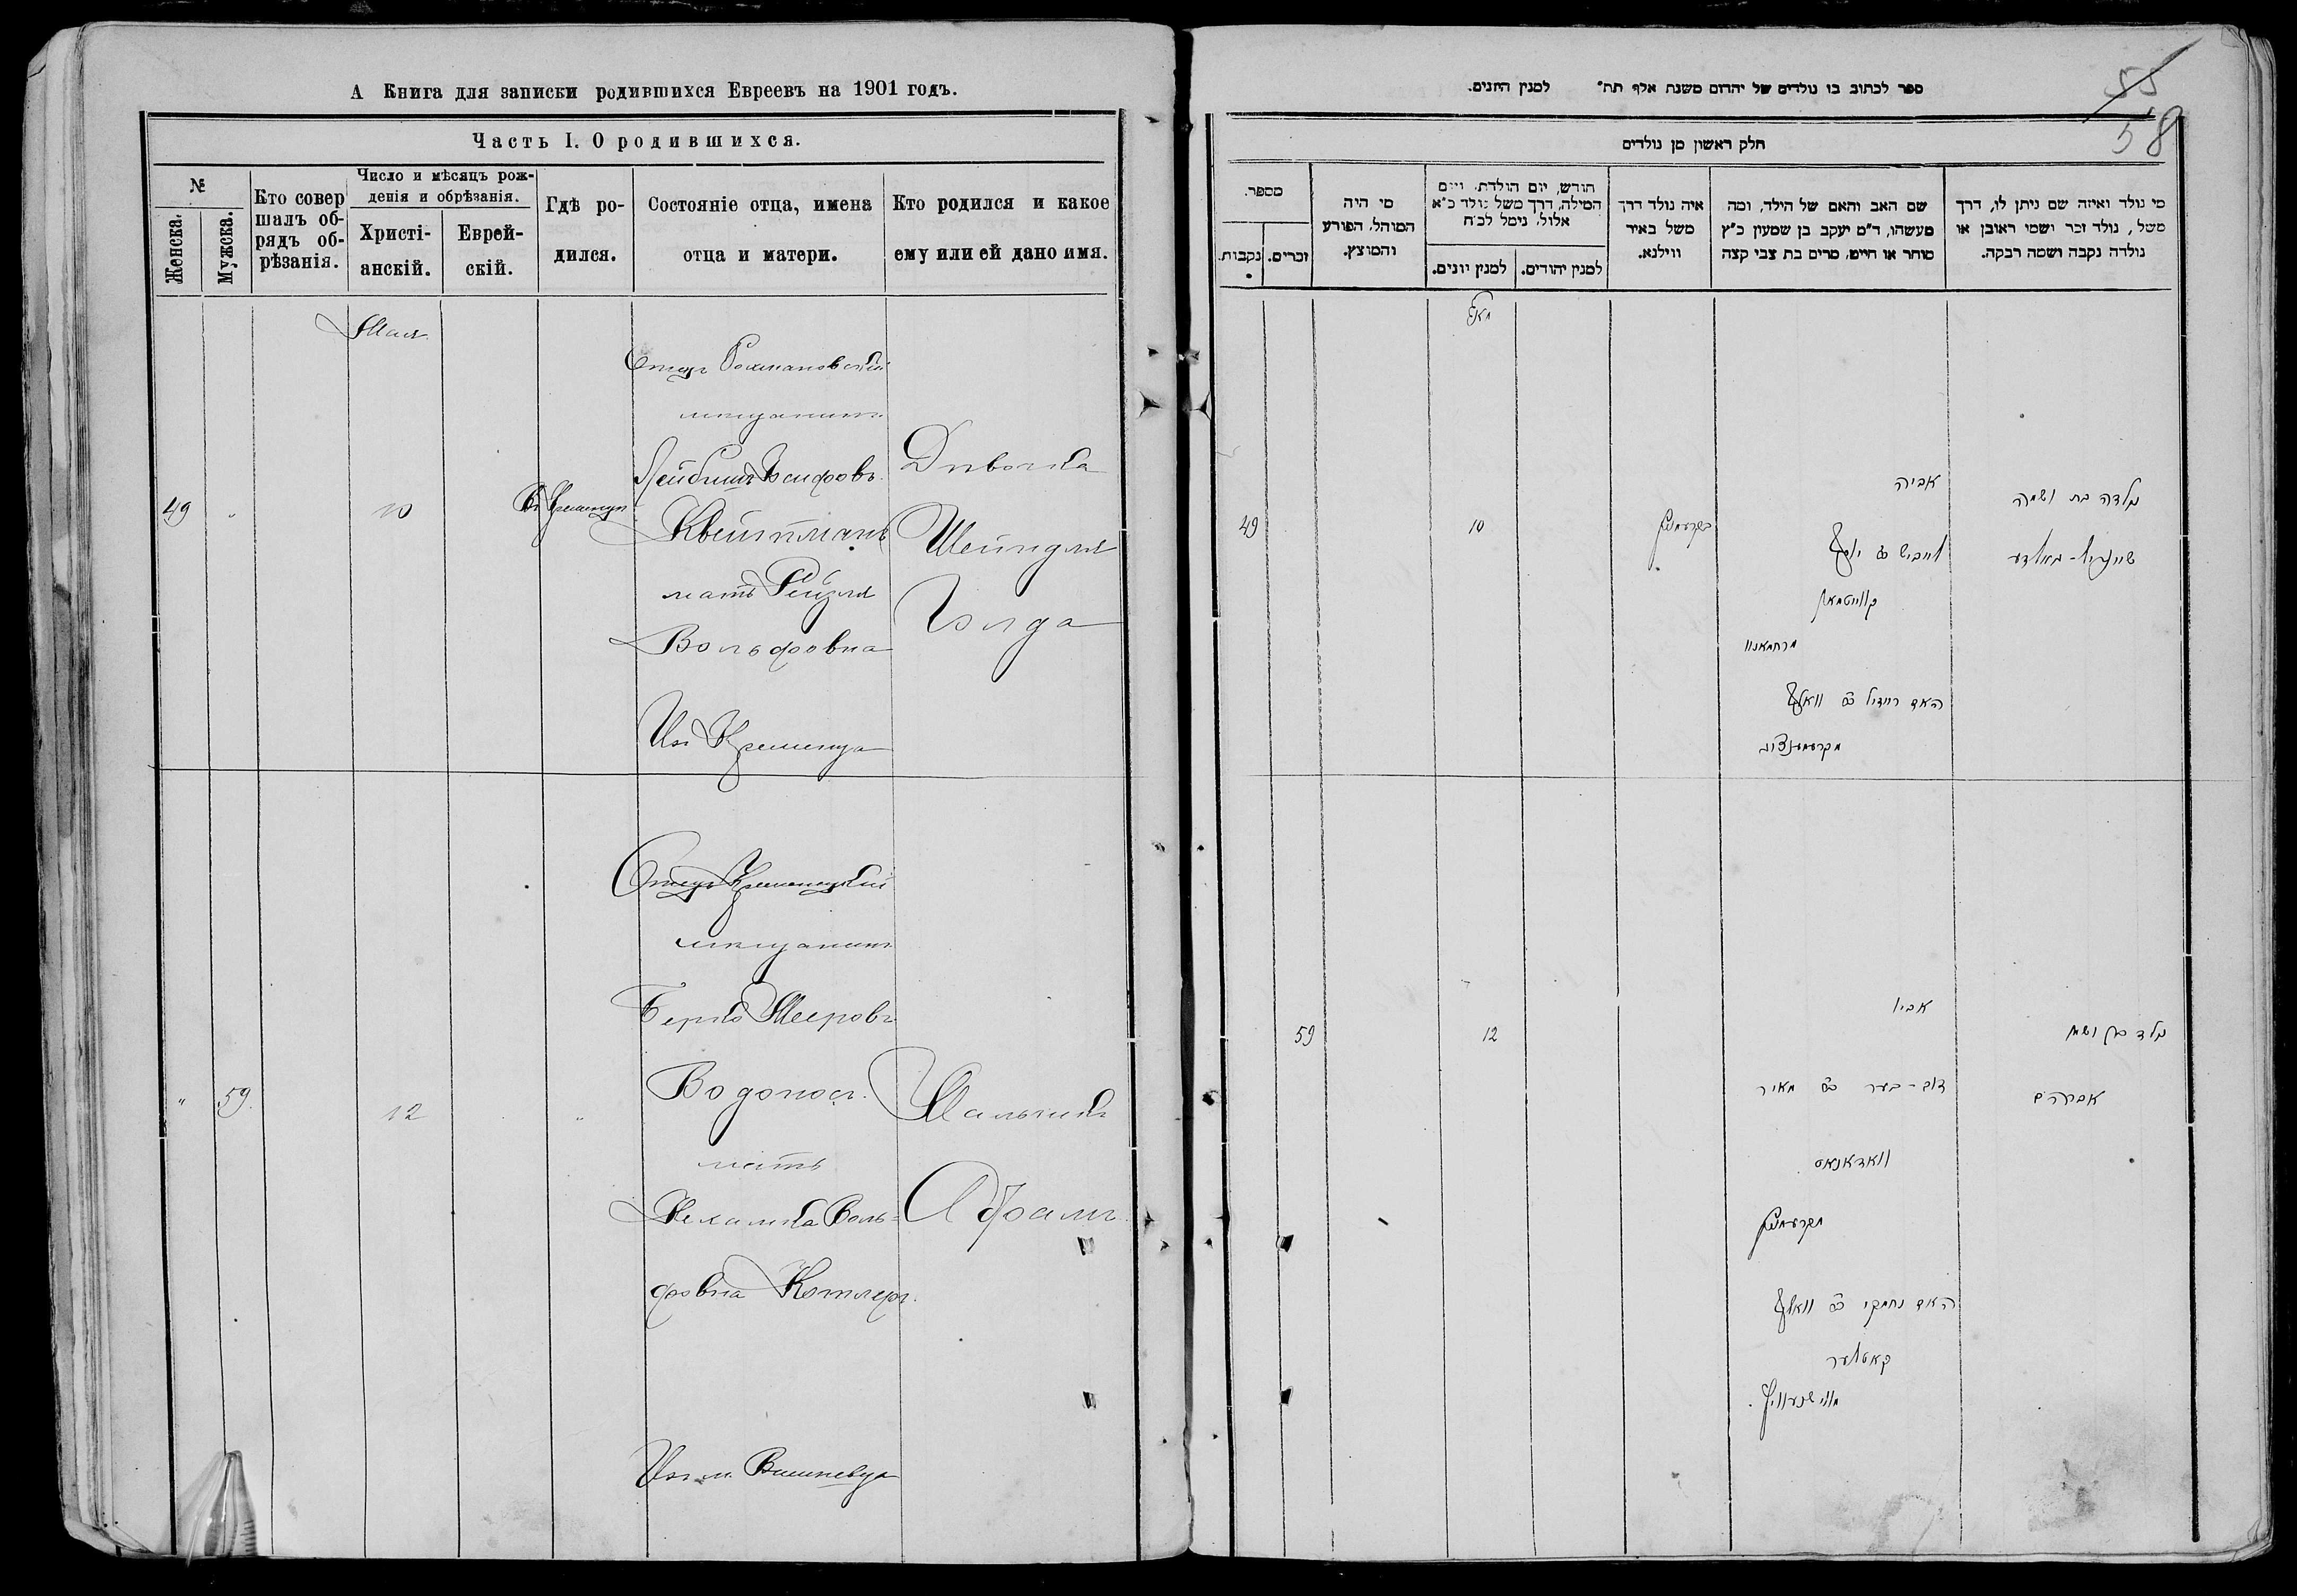 А Книга для записки родившихся Евреевъ на 1901 годъ.
Часть I. О родившихся.
№
Женска.
Мужска.
Кто совер
шалъ об-
рядъ об-
рѣзанія.
Число и мѣсяцъ рож-
денія и обрѣзанія.
Христі-
анскій.
Еврей-
скій.
Гдѣ ро-
дился.
Состояніе отца, имена
отца и матери.
Кто родился и какое
ему или ей дано имя.
Мая
49
10
Въ Кременцѣ
Отецъ Рохмановскій
мещанинъ
Лейбишъ Іосифовъ
Квейтманъ
мать Рейзля
Вольфовна
Изъ Кременца
Дѣвочка
Шейндля
Голда
"
59
12
"
Отецъ Кременецкій
мещанинъ
Берко Мееровъ
Водоносъ
мать
Нехамка Воль-
фовна Котлеръ
Изъ м. Вишневца
Мальчикъ
Абрамъ
ספר לכתוב בו נולדים של יהדום משנת אלף תת" למנין היונים.
55
58
חלק ראשון מן נולדים
מספר.
נקבות.
זכרים.
מי היה
המוהל, הפורע
והמוצץ.
חודש, יום הולדת, ויום
המילה, דרך משל נולד כ"א
אלול, נימל לכ"ח
למנין יונים.
למנין יהודים.
איה נולד דרך
משל באיר
ווילנא.
שם האב והאם של הילד, ומה
מעשהו, ד"מ יעקב בן שמעון כ"ץ
סוחר או חייט, מרים בת צבי קצה
מי נולד ואיזה שם ניתן לו, דרך
משל, נולד זכר ושמו ראובן או
נולדה נקבה ושמה רבקה.
מאי
49
10
אביה
לייביש ב"ר יוסף
קווייטמאן
מרחמאנוו
האם רייזיל ב"ר וואלף
מקרעמעניץ
נולדה בת ושמה
שיינדיל-גאלדע
59
12
אביו
דוב-בער ב"ר מאיר
וואדאנאס
מקרעמניץ
האם נחמקי ב"ר וואלף
קאטלער
מווישנעוויץ.
נולד בן ושמו
אברהם